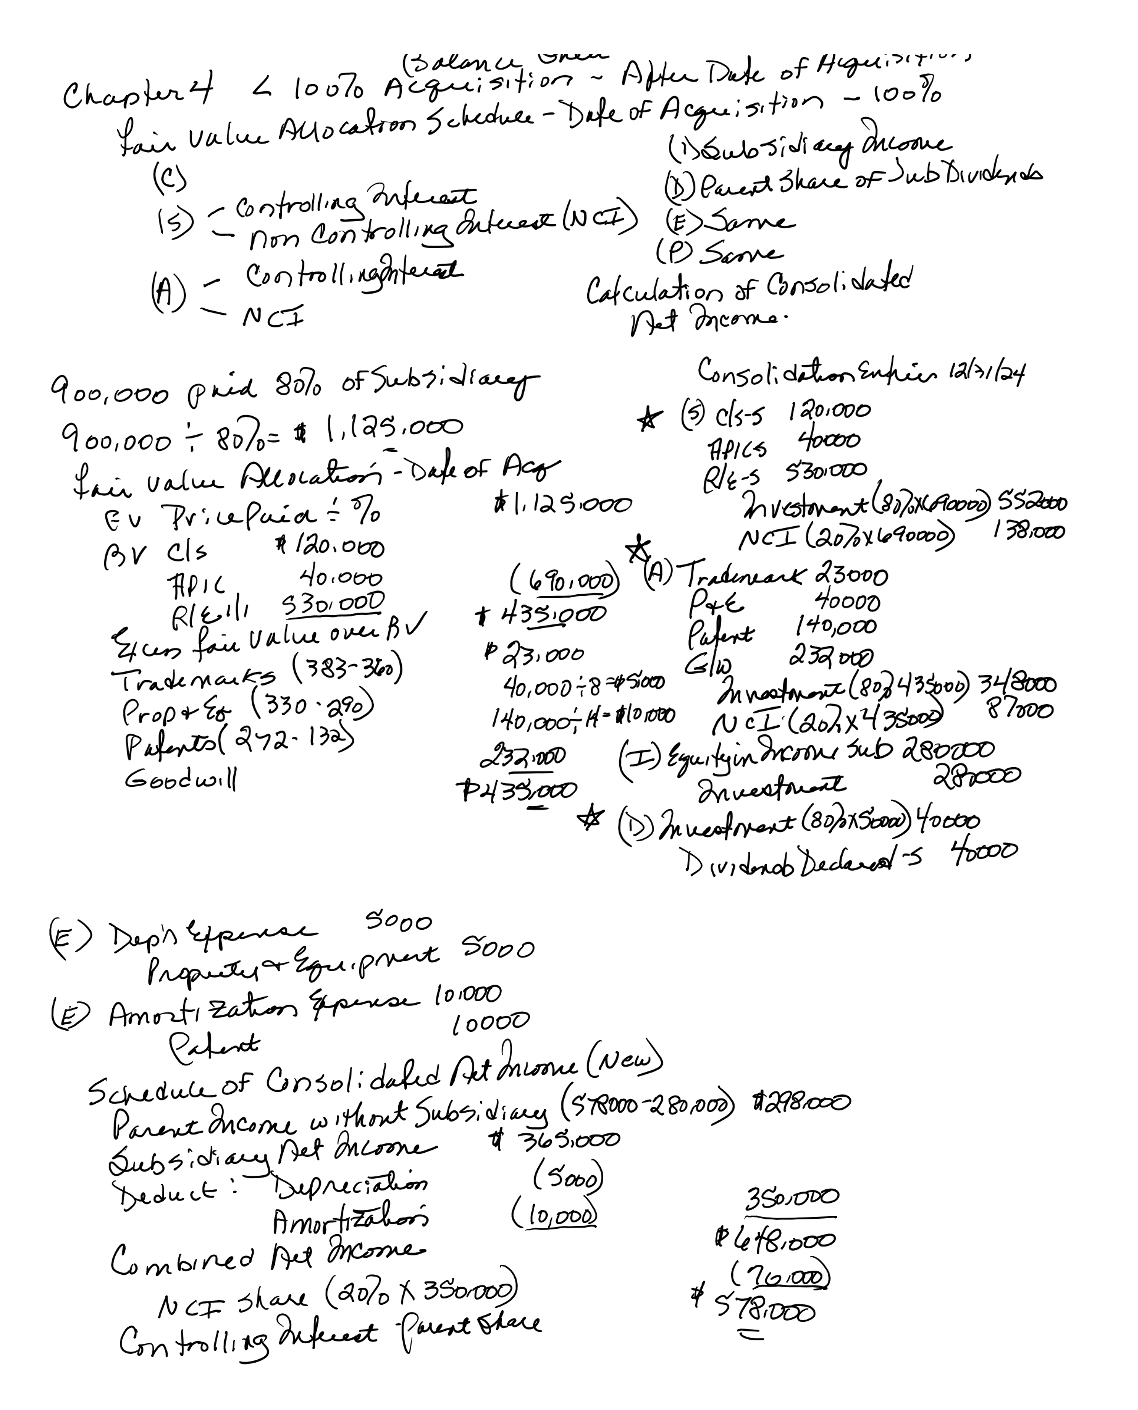 (Balance Sheet
Chapter 4 < 100% Acquisition ~ After Date of Acquisition)
Fair Value Allocation Schedule - Date of Acquisition - 100%
(C)
(S) - Controlling Interest
- Non Controlling Interest (NCI)
(A) - Controlling Interest
- NCI
(I) Subsidiary Income
(D) Parent Share of Sub Dividends
(E) Same
(P) Same
Calculation of Consolidated
Net Income.
900,000 paid 80% of Subsidiary
900,000 ÷ 80% = $ 1,125,000
Fair Value Allocation - Date of Acq
Price Paid ÷ % $1,125,000
BV C/S $120,000
APIC 40,000
R/E 1/1 530,000 (690,000)
Excess Fair Value over BV $ 435,000
Trademarks (383-360) $23,000
Prop & Eq (330-290) 40,000 ÷ 8 = $5000
Patents (272-132) 140,000 ÷ 14 = $10,000
Goodwill 232,000
$435,000
Consolidation Entries 12/31/24
☆ (S) C/S-S 120,000
APICS 40000
R/E-S 530000
Investment (80%X690000) 552000
NCI (20%X690000) 138,000
☆ (A) Trademark 23000
P&E 40000
Patent 140,000
G/W 232000
Investment (80% 435000) 348000
NCI (20%X435000) 87000
(I) Equity in Income Sub 280000
Investment 280000
☆ (D) Investment (80%X50000) 40000
Dividends Declared-S 40000
(E) Dep'n Expense 5000
Property & Equipment 5000
(E) Amortization Expense 10,000
Patent 10000
Schedule of Consolidated Net Income (New)
Parent Income without Subsidiary (578000-280,000) $298,000
Subsidiary Net Income $ 365,000
Deduct: Depreciation (5000)
Amortization (10,000) 350,000
Combined Net Income $648,000
NCI Share (20% X 350,000) (70,000)
Controlling Interest - Parent Share $ 578,000